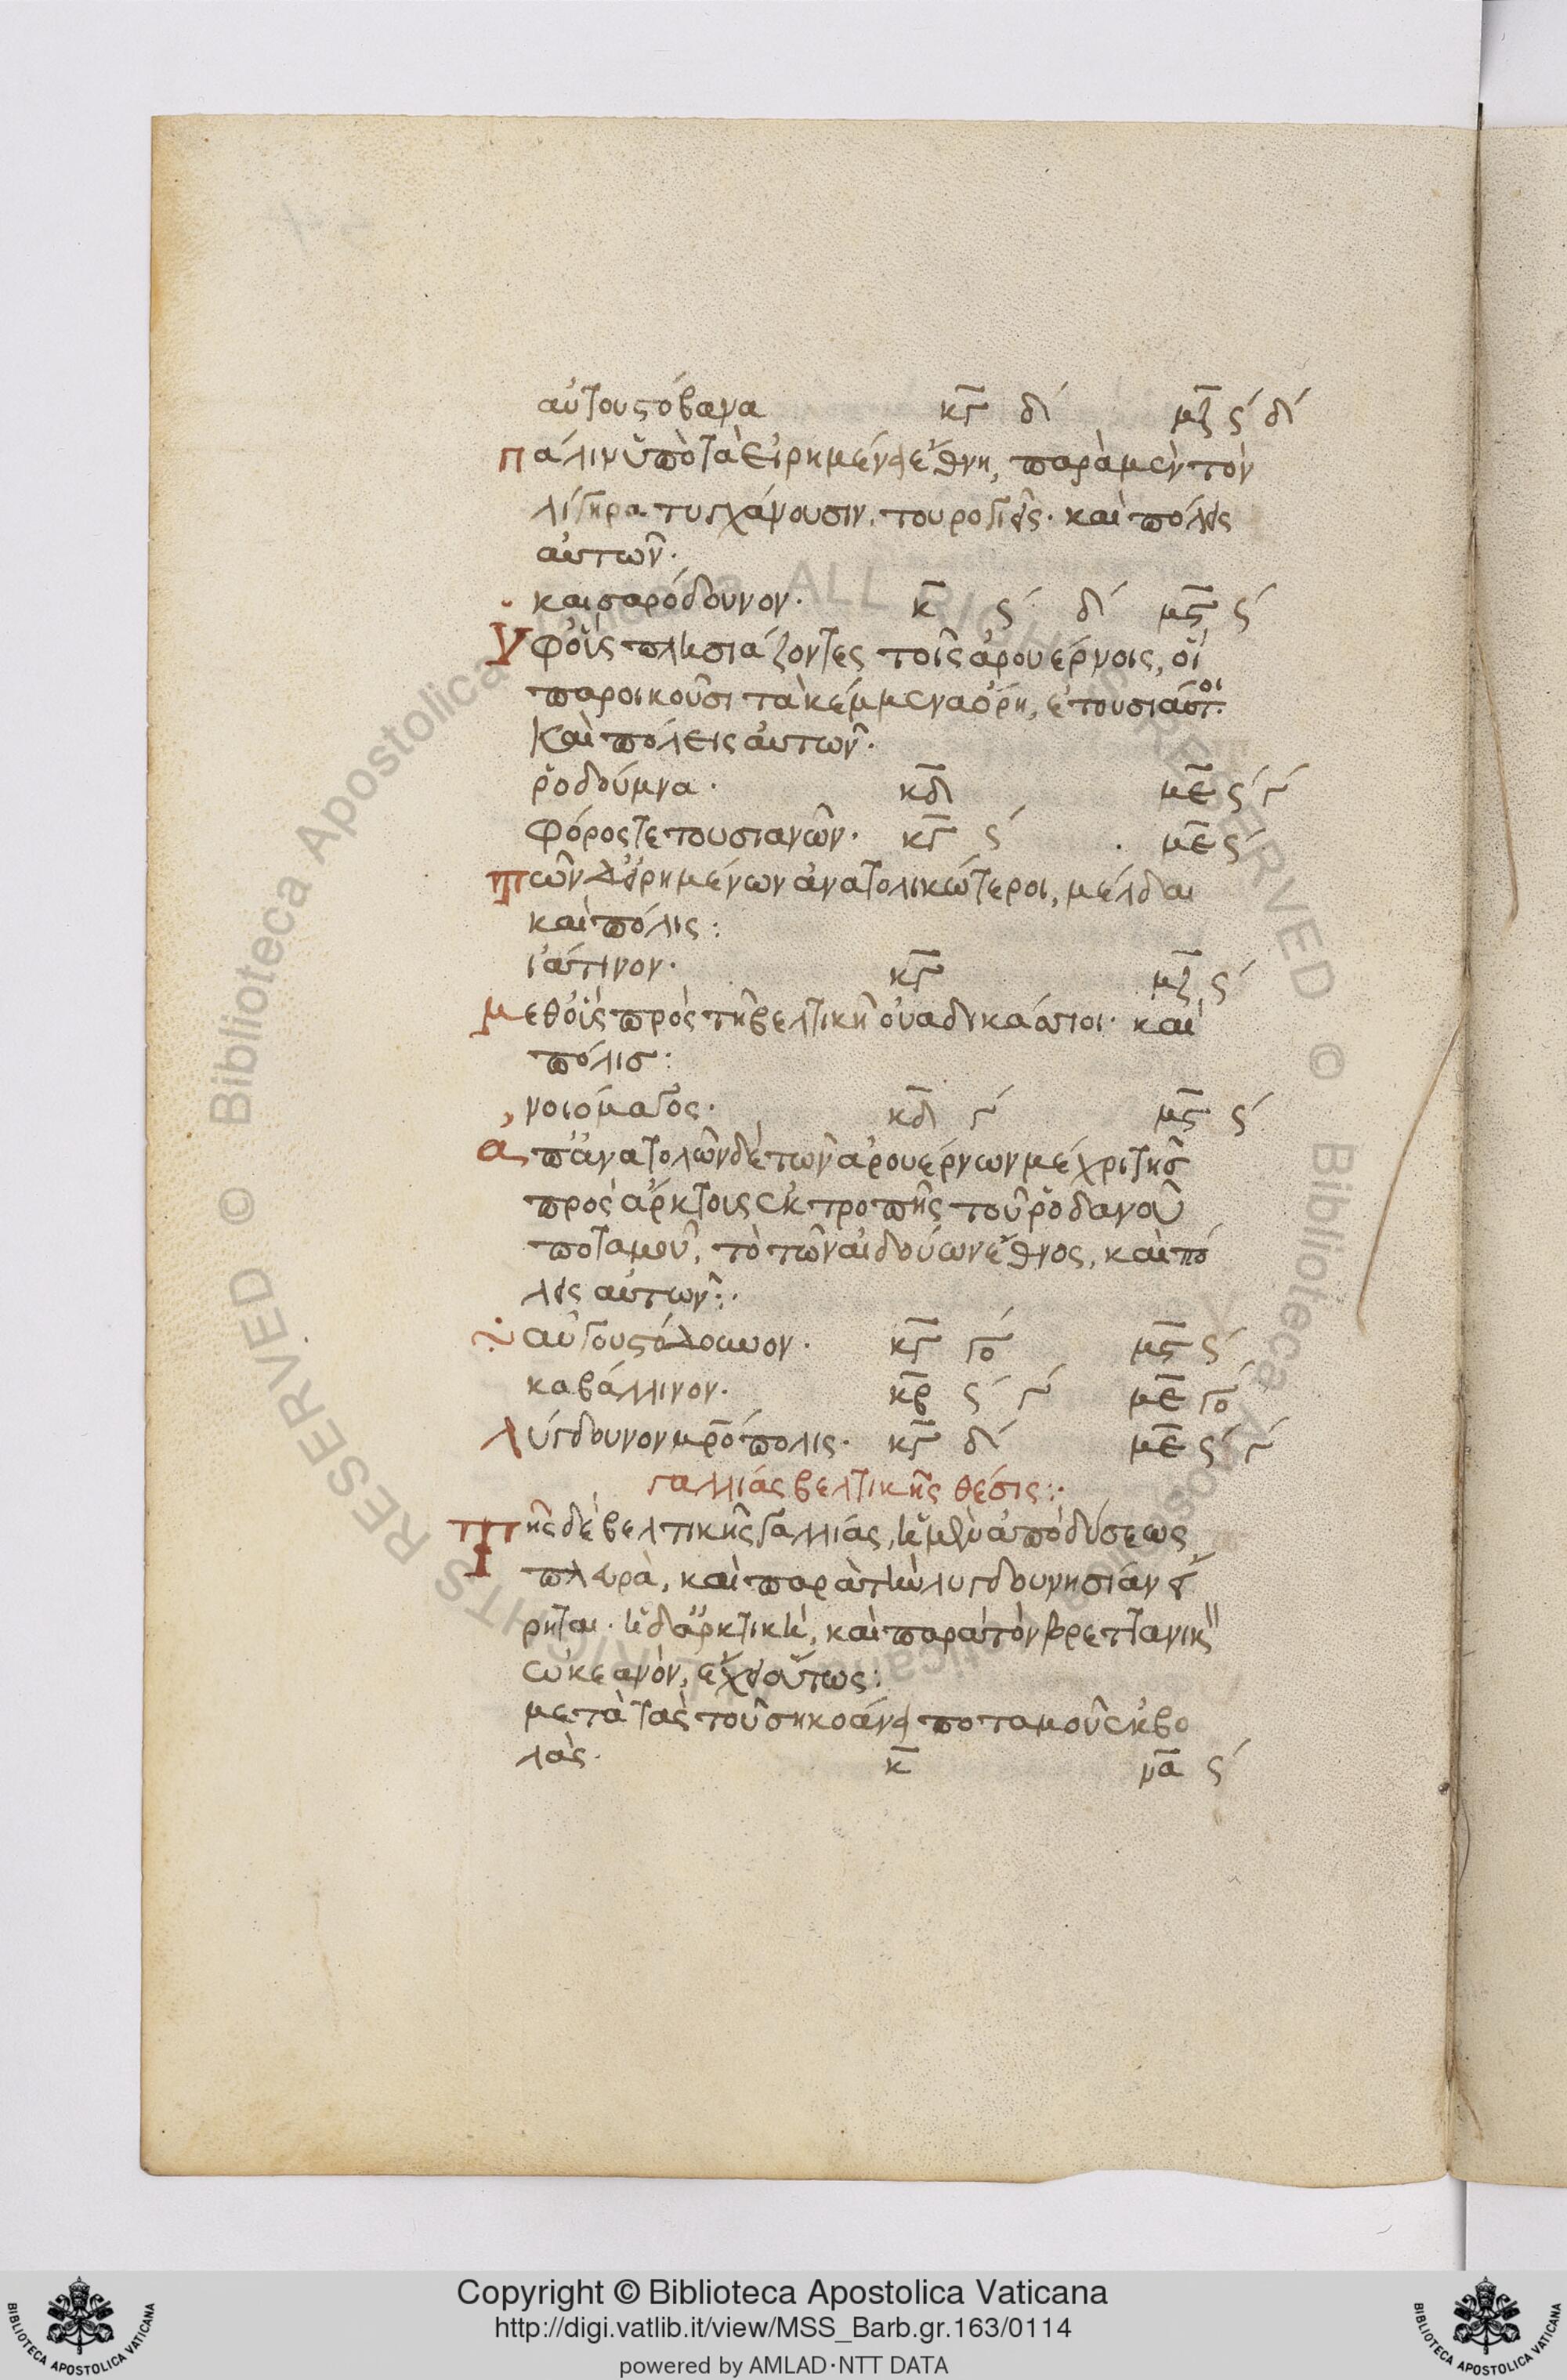 αὐγουστόβανα κγ̅ δ´ μζ̅ ϛ´ δ´
πάλιν ὑπὸ τὰ εἰρημένα ἔθνη, παρὰ μὲν τὸν
λίγηρα τυγχάνουσιν, τουρογιεῖς· καὶ πόλεις
αὐτῶν·
καισαρόδουνον· κ̅ ϛ´ δ´ μϛ̅ ϛ´
ὑφ οἷς πλησιάζοντες τοῖς ἀρουέρνοις, οἳ
παροικοῦσι τὰ κέμμενα ὄρη,
καὶ πόλεις αὐτῶν·
ῥοδούμνα· κδ̅ με̅ ϛ´ γ´
φόρος γετουσιανῶν· κγ̅ ϛ´ με̅ ϛ´
τῶν δ εἰρημένων ἀνατολικώτεροι, μέλδαι
καὶ πόλις:
ἰάτινον· κγ̅ μζ̅ ϛ´
μεθ οἷς πρὸς τῆ βελγικῆ οὐαδικάσιοι· καὶ
πόλισ:
νοιόμαγος· κδ̅ γ´ μϛ̅ ϛ´
ἀπ ἀνατολῶν δὲ τῶν ἀρουέρνων μέχρι τῆσ
πρὸς ἄρκτοις ἐκτροπῆς τοῦ ῥοδανοῦ
ποταμοῦ, τὸ τῶν αἰδούων ἔθνος, καὶ πό
λεις αὐτῶν:·
αὐγουστόδουνον· κγ̅ γο´ μϛ̅ ϛ´
καβάλλινον· κβ̅ ϛ´ γ´ με̅ γο´
λύγδουνον μρο̅πολις· κγ̅ δ´ με̅ ϛ´ γ´
γαλλίας βελγικῆς θέσις:·
τῆς δὲ βελγικῆς γαλλίας, ἡ μὲν ἀπὸ δύσεως
πλευρὰ, καὶ παρὰ τὴν λυγδουνησίαν εἴ
ρηται· ἡ δ ἀρκτικὴ, καὶ παρὰ τὸν βρεττανικ
ὠκεανὸν, ἔχει οὕτως:
μετὰ τὰς τοῦ σηκοάνα ποταμοῦ ἐκβο
λὰς· κ̅ να̅ ϛ´
Copyright © Biblioteca Apostolica Vaticana
http://digi.vatlib.it/view/MSS_Barb.gr.163/0114
powered by AMLAD·NTT DATA